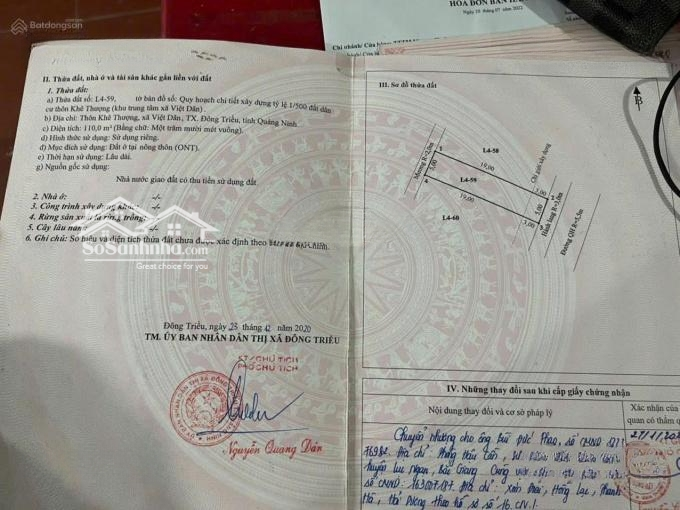 Batdongsan
HÓA ĐƠN BÁN
II. Thửa đất, nhà ở và tài sản khác gắn liền với đất
1. Thửa đất:
a) Thửa đất số: L4-59, tờ bản đồ số: Quy hoạch chi tiết xây dựng tỷ lệ 1/500 đất dân
cư thôn Khê Thượng (khu trung tâm xã Việt Dân)
b) Địa chỉ: Thôn Khê Thượng, xã Việt Dân, TX. Đông Triều, tỉnh Quảng Ninh
c) Diện tích: 110,0 m² (Bằng chữ: Một trăm mười mét vuông).
d) Hình thức sử dụng: Sử dụng riêng.
đ) Mục đích sử dụng: Đất ở tại nông thôn (ONT).
e) Thời hạn sử dụng: Lâu dài.
g) Nguồn gốc sử dụng:
Nhà nước giao đất có thu tiền sử dụng đất.
2. Nhà ở: -/-
3. Công trình xây dựng khác: -/-
4. Rừng sản xuất là rừng trồng: -/-
5. Cây lâu năm: -/-
6. Ghi chú: Số hiệu và diện tích thửa đất chưa được xác định theo
SoSanhNha.com
Great choice for great
Đông Triều, ngày 23 tháng 12 năm 2020
TM. ỦY BAN NHÂN DÂN THỊ XÃ ĐÔNG TRIỀU
KT/CHỦ TỊCH
PHÓ CHỦ TỊCH
Nguyễn Quang Dân
III. Sơ đồ thửa đất
B
Mương R=2,0m
1
L4-58
19,00
Chỉ giới xây dựng
5,00
4
L4-59
3,00
2
19,00
5,00
3,00
3
L4-60
Hành lang R=3,0m
Đường QH R=5,5m
IV. Những thay đổi sau khi cấp giấy chứng nhận
Nội dung thay đổi và cơ sở pháp lý
Xác nhận của
quan có thẩm
Chuyển nhượng cho ông Bùi Đức
địa chỉ:
huyện Lục Ngạn, Bắc Giang
số CMND: địa chỉ: Hồng Lạc, Thanh
Hà, Hải Dương theo hồ sơ số 16.CN.1